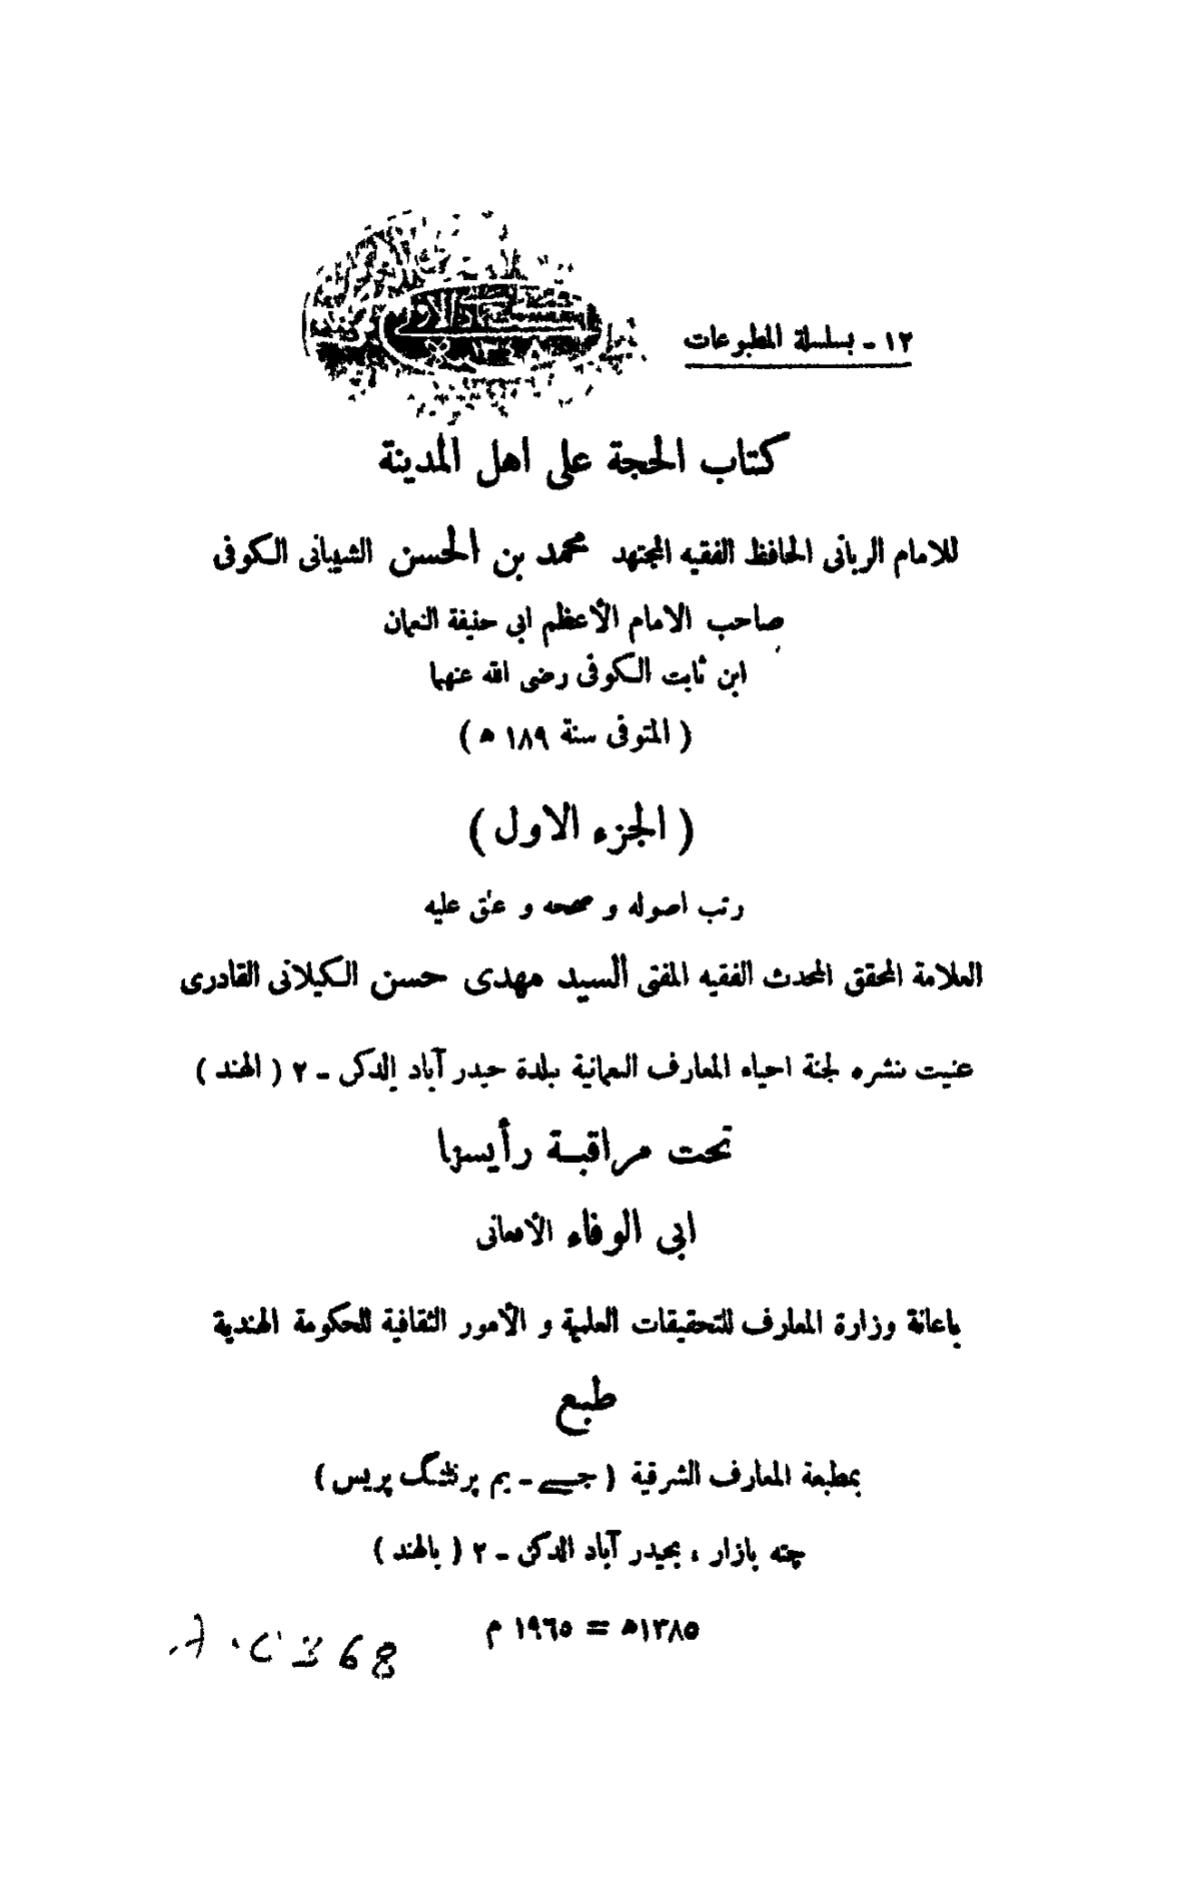 ١٢ - بسلسلة المطبوعات
كتاب الحجة على اهل المدينة
للامام الربانى الحافظ الفقيه المجتهد محمد بن الحسن الشيبانى الكوفى
صاحب الامام الأعظم ابى حنيفة النعمان
ابن ثابت الكوفى رضى الله عنهما
( المتوفى سنة ١٨٩ ه )
( الجزء الاول )
رتب اصوله و صححه و علق عليه
العلامة المحقق المحدث الفقيه المفتى السيد مهدى حسن الكيلانى القادرى
عنيت بنشره لجنة احياء المعارف النعمانية ببلدة حيدر آباد الدكن - ٢ ( الهند )
تحت مراقبة رأيسها
ابى الوفاء الأفغانى
باعانة وزارة المعارف للتحقيقات العلمية و الأمور الثقافية للحكومة الهندية
طبع
بمطبعة المعارف الشرقية ( جے - يم پرنٹنگ پريس )
چته بازار ، بحيدر آباد الدكن - ٢ ( بالهند )
١٣٨٥ه = ١٩٦٥ م